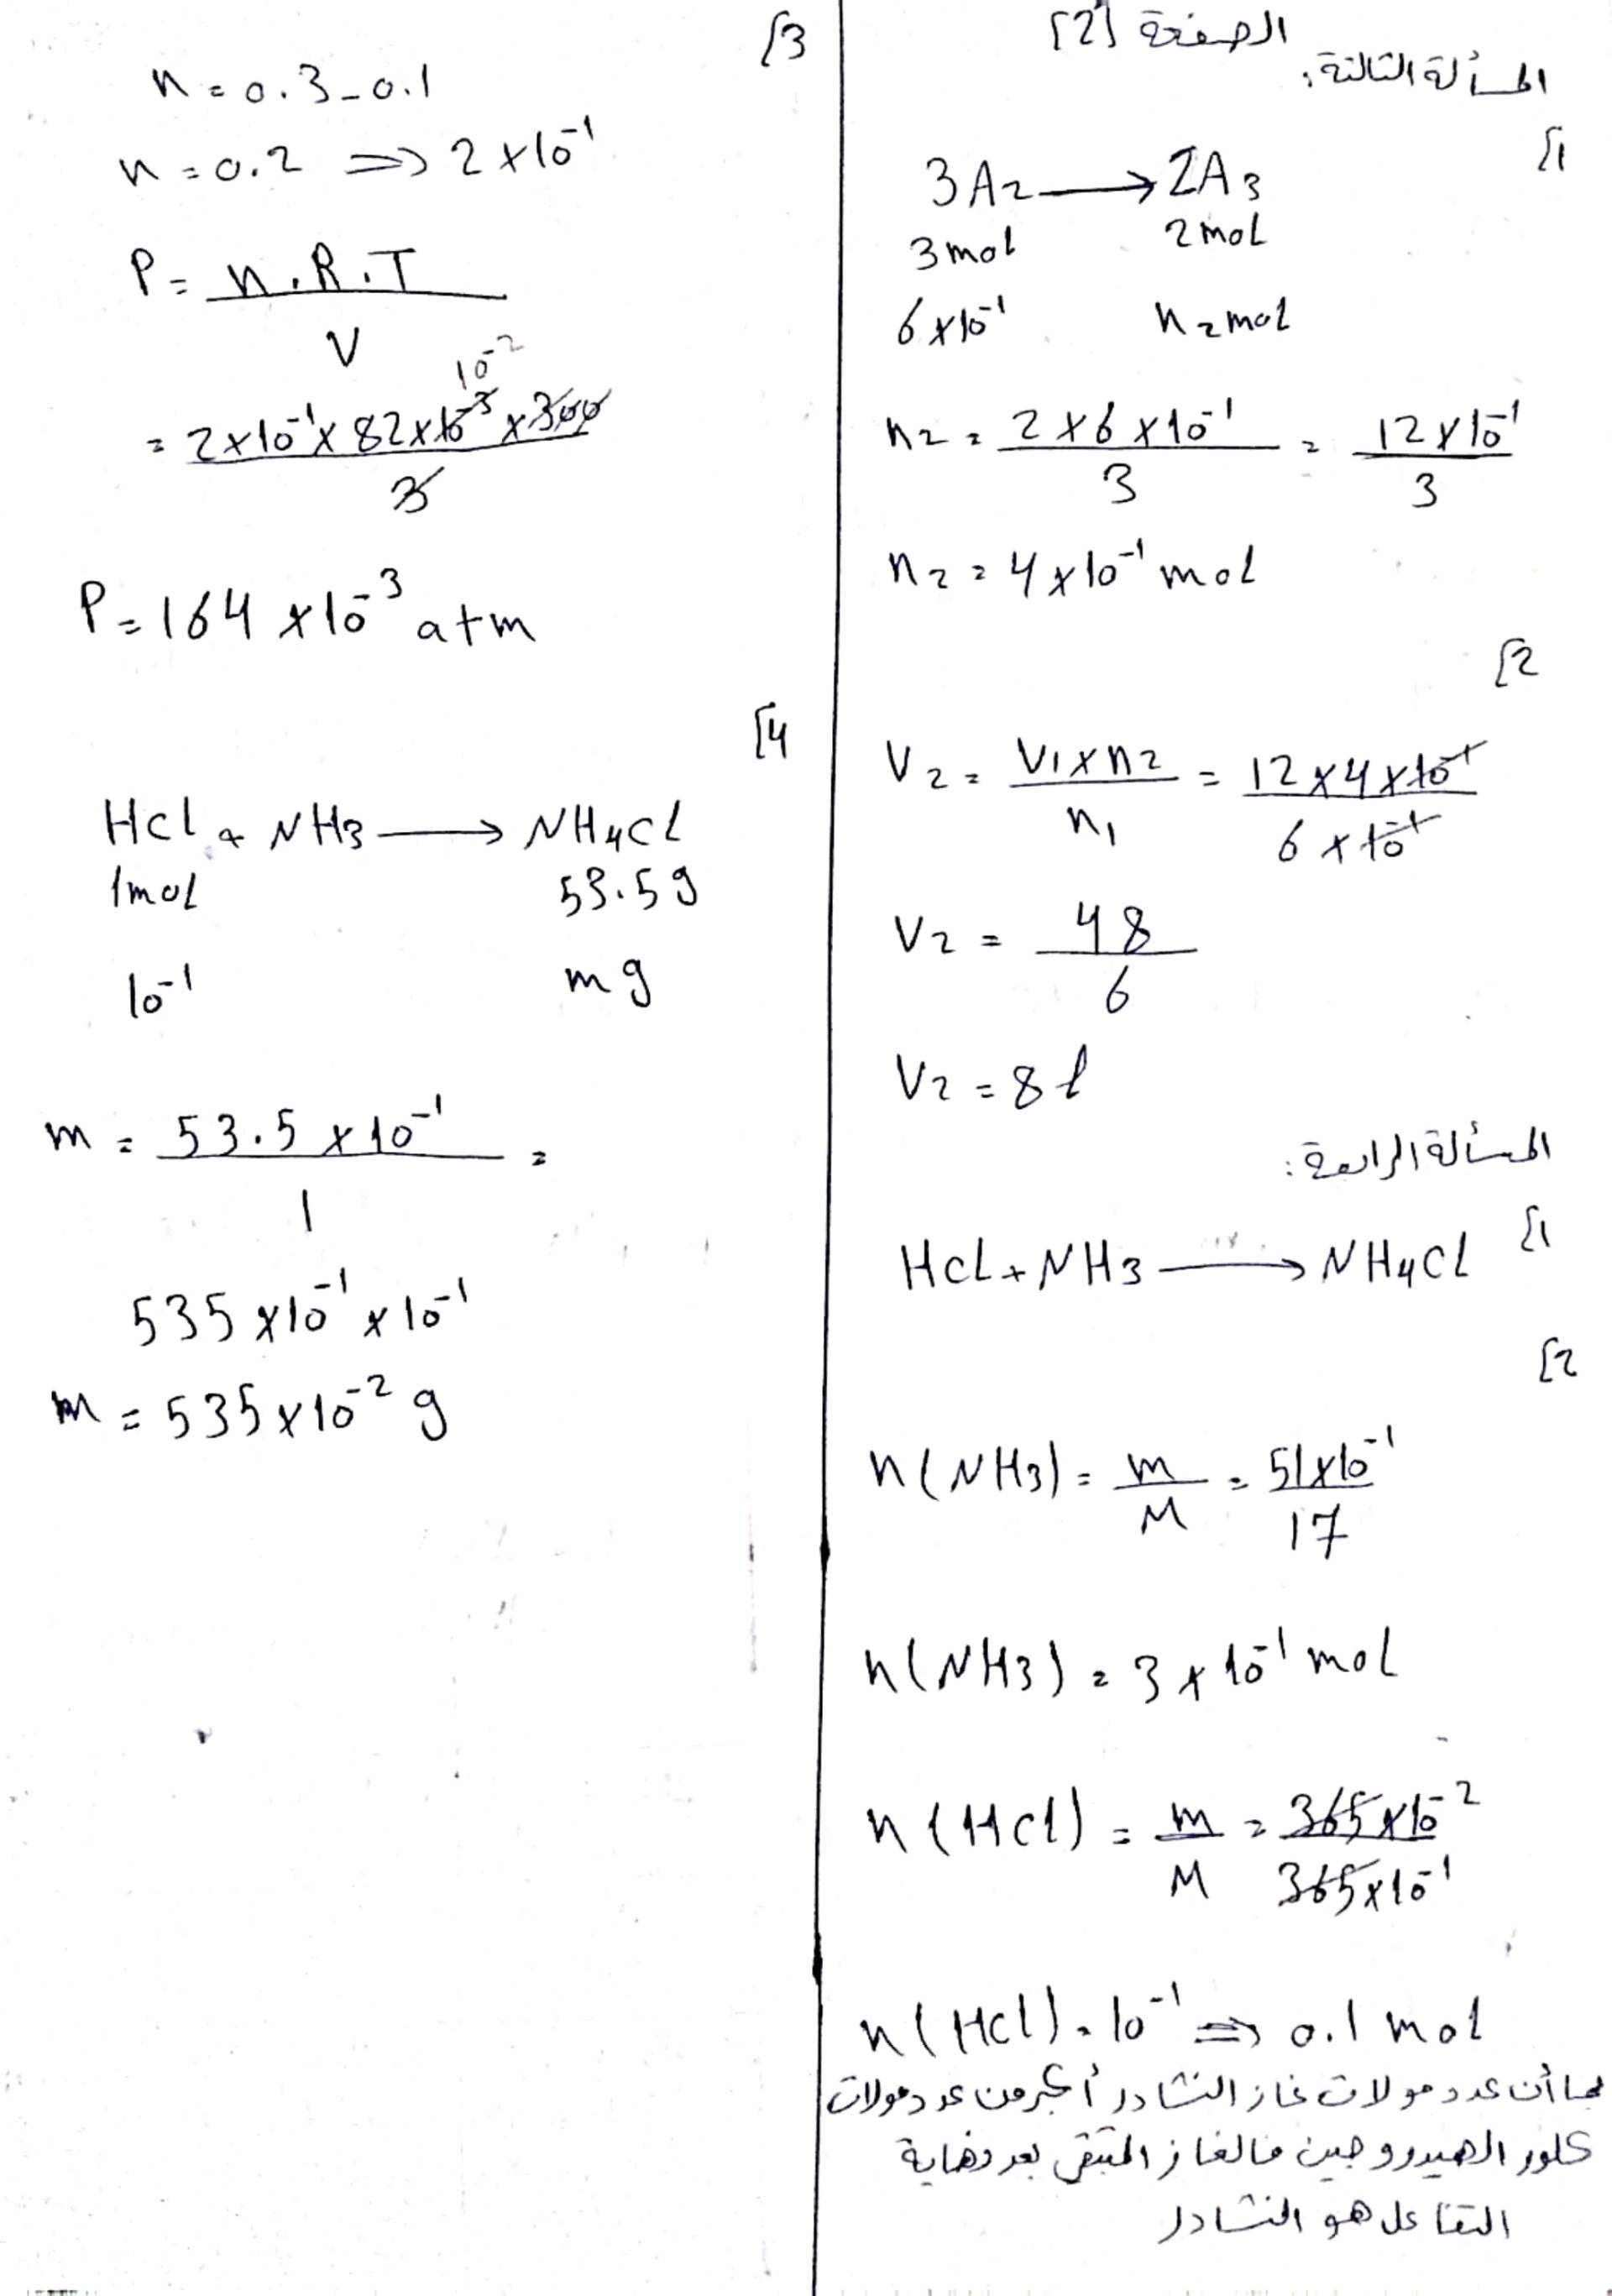 الصفحة [2]
المسألة الثالثة:
[1
3A2 → 2A3
3mol 2mol
6×10⁻¹ n2mol
n2 = 2×6×10⁻¹ / 3 = 12×10⁻¹ / 3
n2 = 4×10⁻¹ mol
[2
V2 = V1×n2 / n1 = 12×4×10⁻¹ / 6×10⁻¹
V2 = 48 / 6
V2 = 8 l
المسألة الرابعة:
[1
HCl + NH3 → NH4Cl
[2
n(NH3) = m / M = 51×10⁻¹ / 17
n(NH3) = 3×10⁻¹ mol
n(HCl) = m / M = 365×10⁻² / 365×10⁻¹
n(HCl) = 10⁻¹ ⇒ 0.1 mol
بما أن عدد مولات غاز النشادر أكبر من عدد مولات
كلور الهيدروجين فالغاز المتبقي بعد نهاية
التفاعل هو النشادر
[3
n = 0.3 - 0.1
n = 0.2 ⇒ 2×10⁻¹
P = n.R.T / V
10⁻²
= 2×10⁻¹×82×10⁻³×300 / 3
P = 164×10⁻³ atm
[4
HCl + NH3 → NH4Cl
1mol 53.5g
10⁻¹ mg
m = 53.5×10⁻¹ / 1 =
535×10⁻¹×10⁻¹
m = 535×10⁻² g